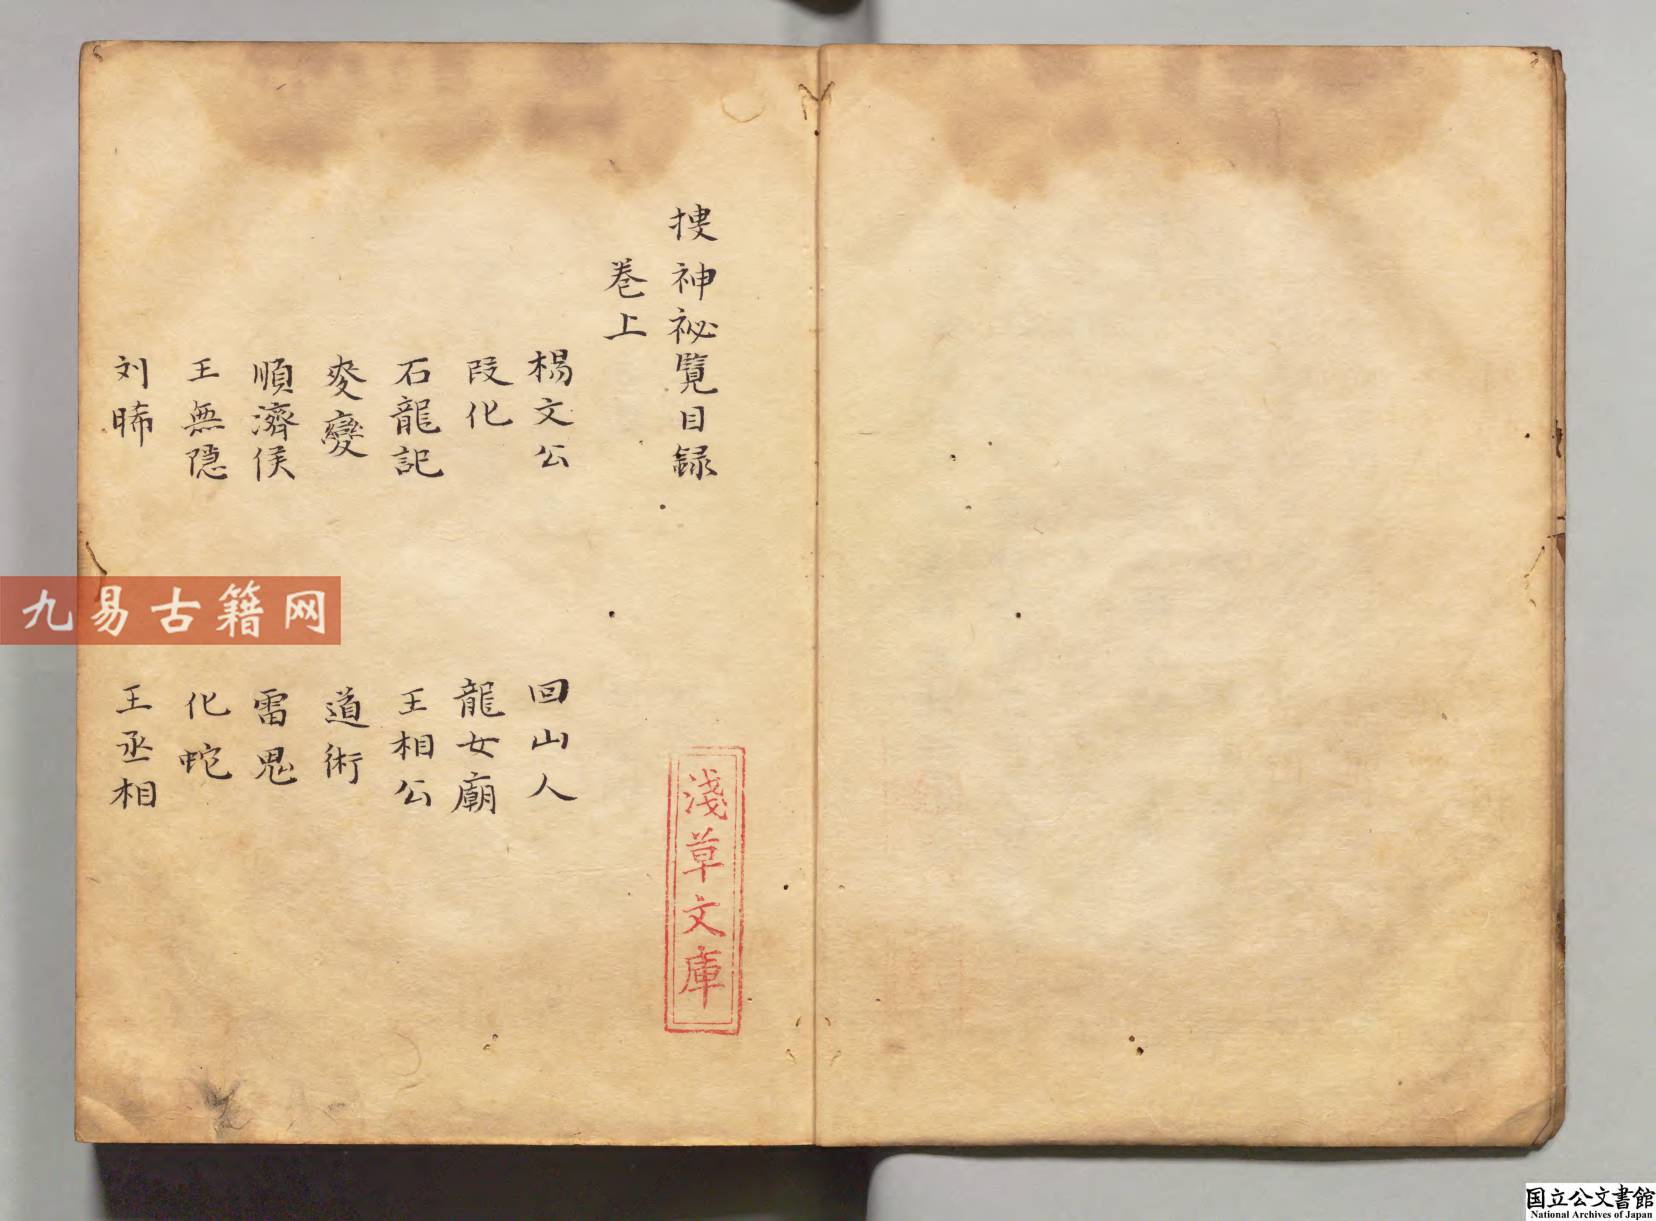 搜神祕覽目録
卷上
楊文公
回山人
段化
龍女廟
石龍記
王相公
麥變
道術
順濟侯
雷鬼
王無隱
化蛇
刘晞
王丞相
淺草文庫
九易古籍网
国立公文書館
National Archives of Japan